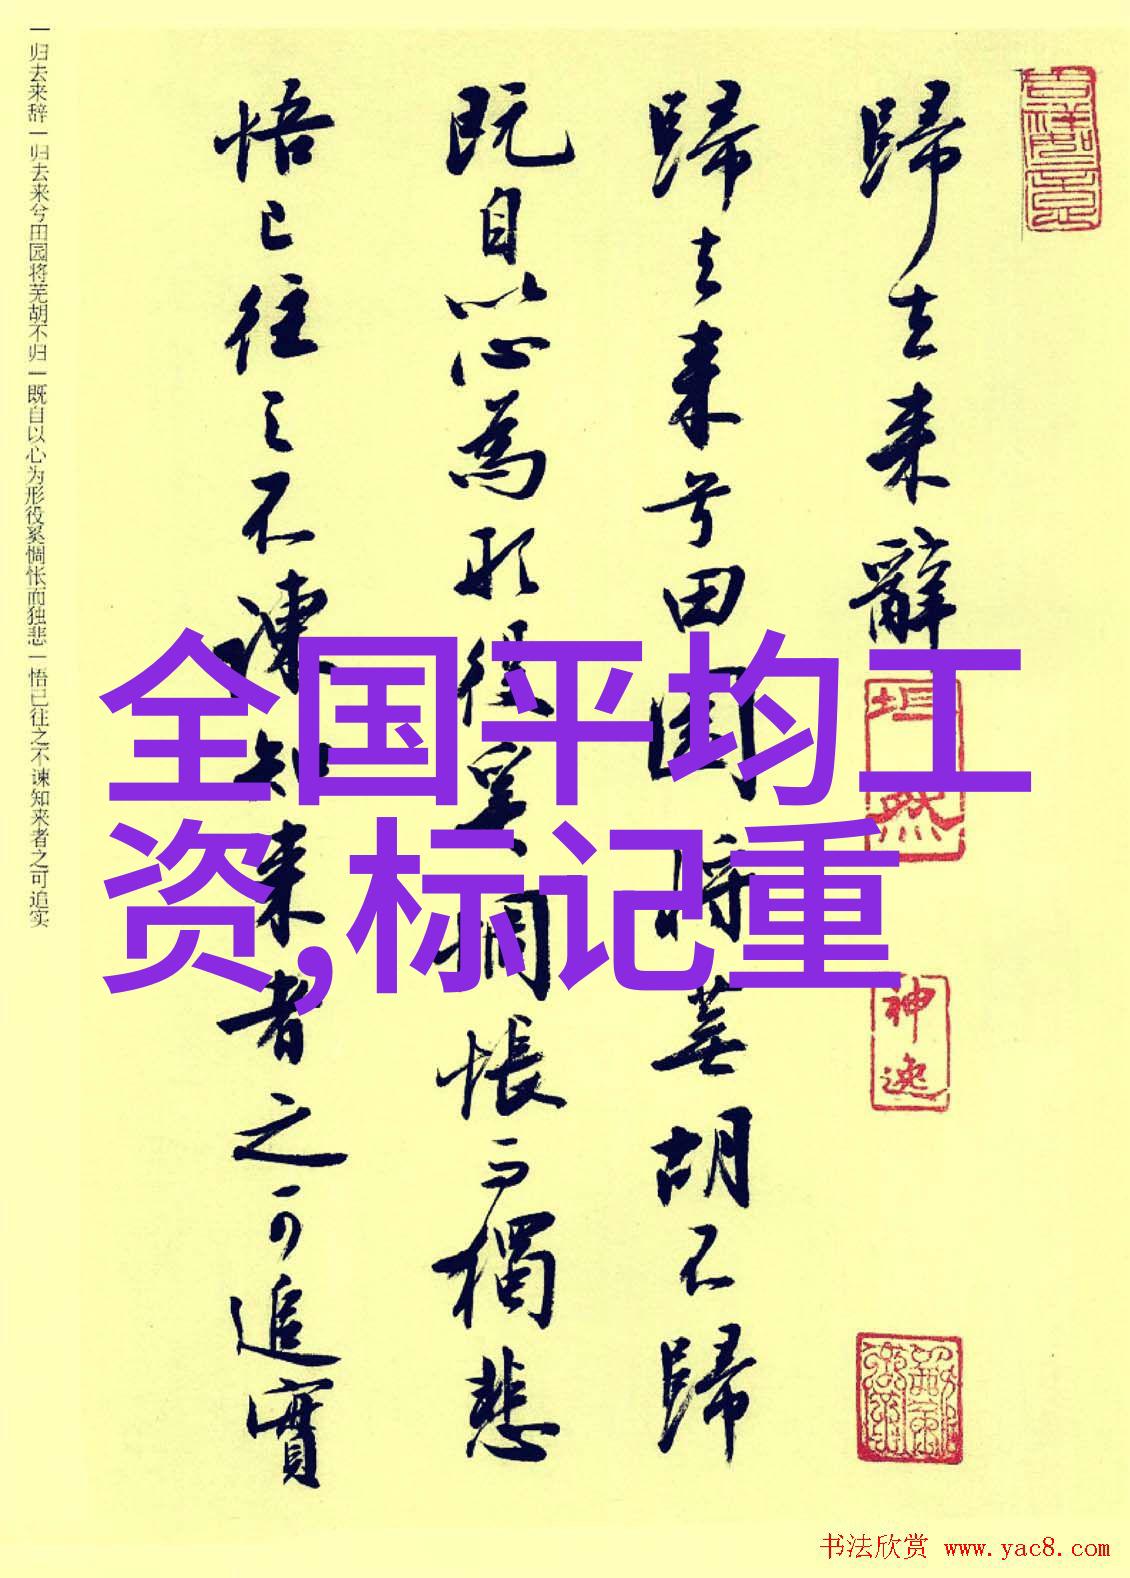 一归去来辞一归去来兮田园将芜胡不归一既自以心为形役奚惆怅而独悲一悟已往之不谏知来者之可追实
歸去来辭
歸去来兮田園将蕪胡不歸
既自以心為形役奚惆悵而獨悲
悟已往之不諫知来者之可追實
坦然
神逸
全国平均工
资,标记重
书法欣赏 www.yac8.com